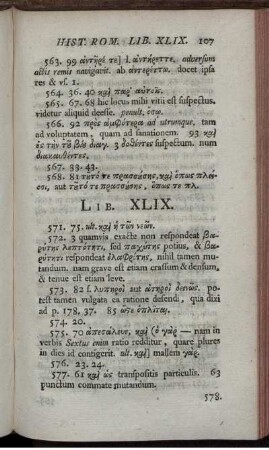 HIST. ROM. LIB. XLIX. 107
563. 99 ἀντῆρέ τε] l. ἀντήρεττε, adversum
actis remis navigavit. ab ἀντερέττω. docet ipsa
res & vs. 1.
564. 36. 40 καὶ παρ' αὐτοῦ.
565. 67. 68 hic locus mihi vitii est suspectus.
videtur aliquid deesse. penult. ὅπῃ.
566. 92 πρὸς ἀμφότερα ad utrumque, tam
ad voluptatem, quam ad sanationem. 93 καὶ
ἐς τὴν τοῦ βίου διαγ. 3 δοθέντες suspectum. num
διακαυθέντες.
567. 33. 43.
568. 81 τοῦτό τε πρασσούσης, καὶ ὅπως πλεύ-
σει, aut τοῦτό τε πρασσούσης, ὅπως τε πλ.
LIB. XLIX.
571. 75. ult. καὶ ἡ τῶν νεῶν.
572. 3 quamvis exacte non respondeat βα-
ρύτης λεπτότητι, sed παχύτης potius, & βα-
ρύτητι respondeat ἐλαφρότης, nihil tamen mu-
tandum. nam grave est etiam crassum & densum,
& tenue est etiam leve.
573. 82 l. λυπηροὶ aut ἀτηροὶ δεινῶς. po-
test tamen vulgata ea ratione defendi, qua dixi
ad p. 178, 37. 85 ὥστε ὁπλίτας.
574. 20.
575. 70 ἀπεσάλευε, καὶ (ὁ γὰρ — nam in
verbis Sextus enim ratio redditur, quare plures
in dies id contigerit. ult. καὶ] mallem γάρ.
576. 23. 24.
577. 61 καὶ ὡς transpositis particulis. 63
punctum commate mutandum.
578.